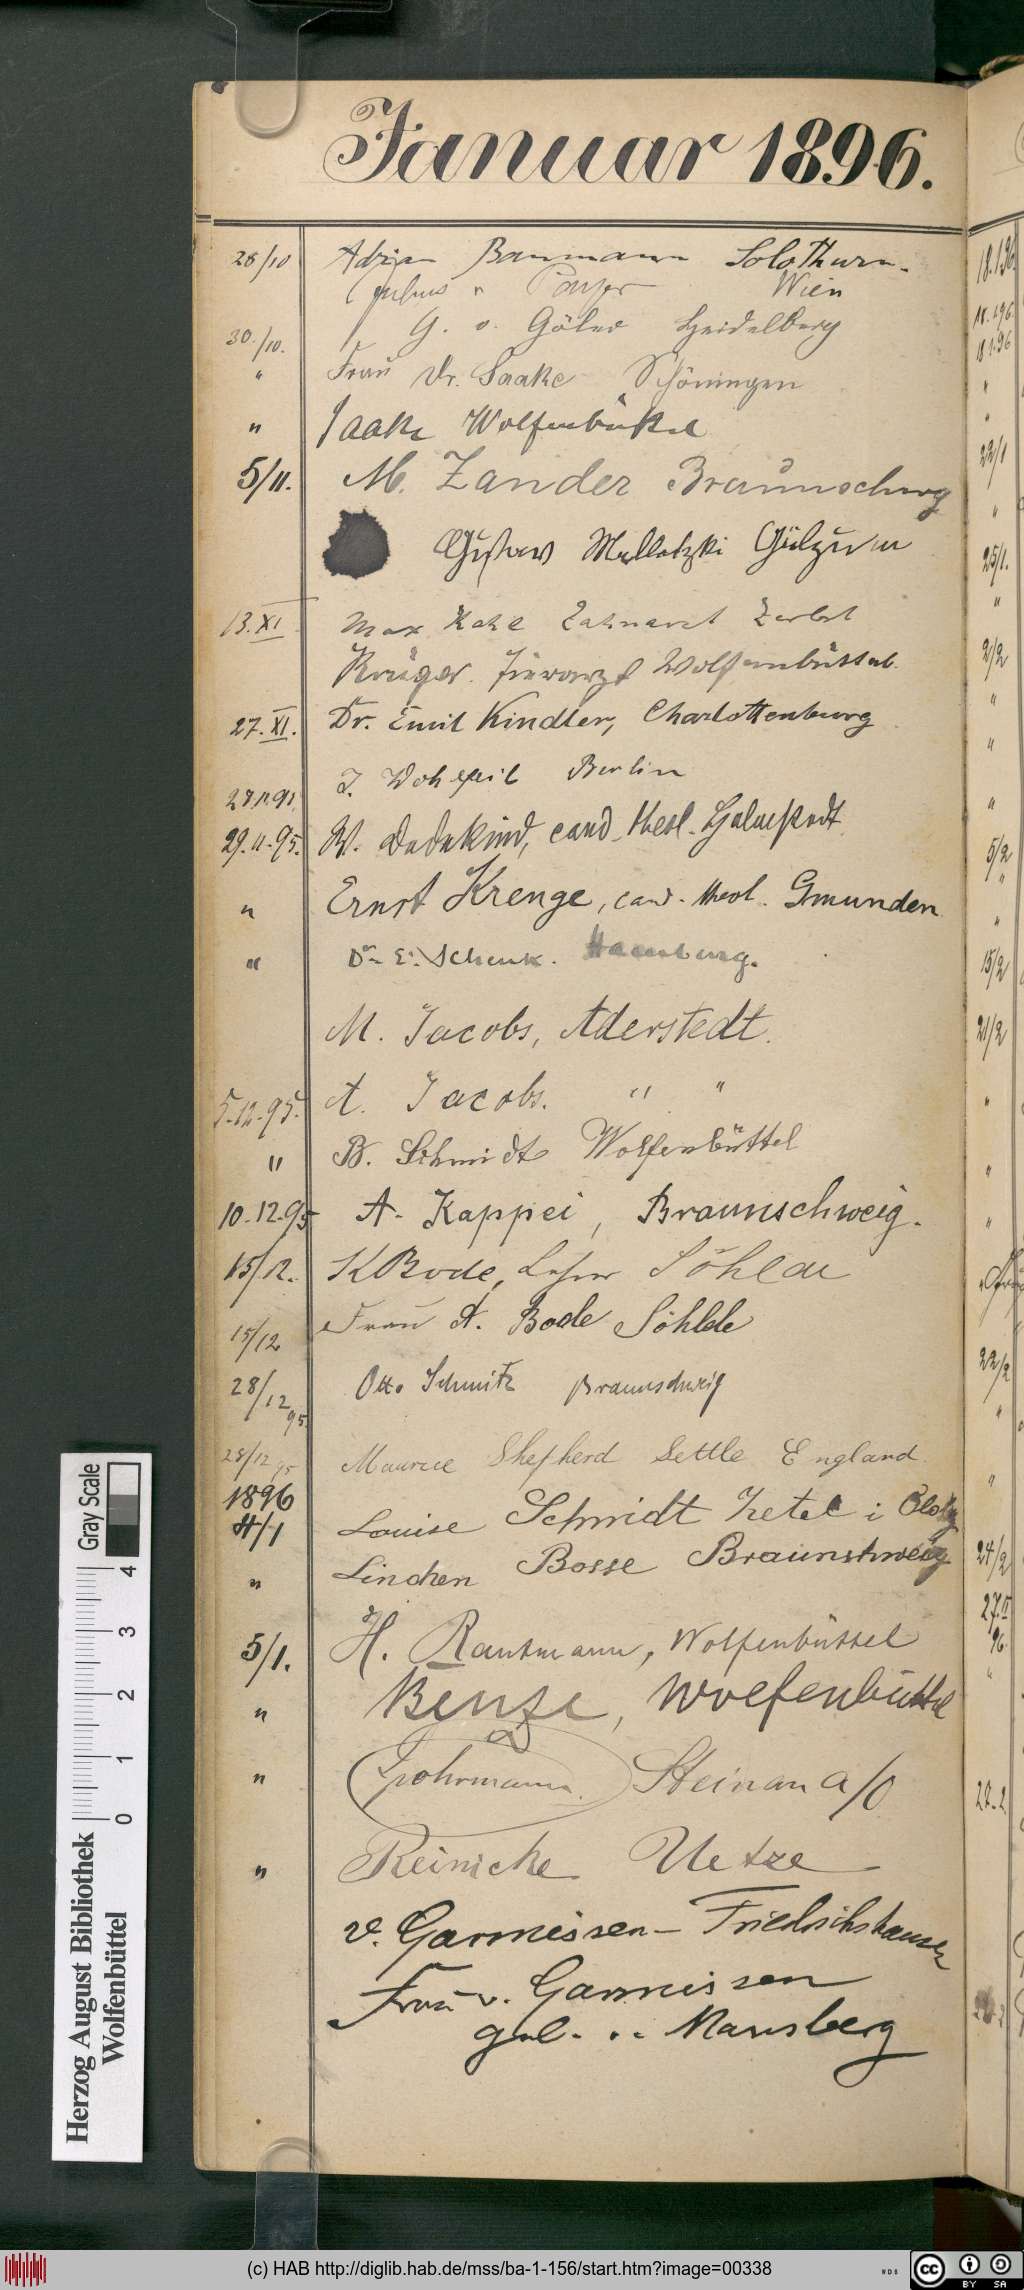 Januar 1896.
28/10 Adrian Baumann Solothurn.
Julius v Payer Wien
30./10. G. v. Göler Heidelberg
" Frau Dr. Saake Schöningen
" Saake Wolfenbüttel
5/11. M. Zander Braunschweig
Gustav
13.XI Max Kahl Zahnarzt Zerbst
Krüger. Tierarzt Wolfenbüttel.
27.XI. Dr. Emil Kindler, Charlottenburg
J. Berlin
29.11.95. W. Dedekind, cand. theol. Helmstedt
" Ernst Krenge, cand. theol. Gmunden
" Dr. E. Schenk. Hamburg.
M. Jacobs, Aderstedt.
5.12.95. A. Jacobs. " "
" B. Schmidt Wolfenbüttel
10.12.95 A. Kappei, Braunschweig.
15/12. K Bode, Lehrer Söhlde
15/12 Frau A. Bode Söhlde
28/12 95. Otto Schmitz Braunschweig
28/12 95 Maurice Shepherd Settle England
1896
4/1 Louise Schmidt Zetel i Oldbg
" Linchen Bosse Braunschweig
5/1. H. Rautmann, Wolfenbüttel
" Wolfenbüttel
" Steinau a/O
" Reinicke Uetze
v. Garmissen - Friedrichshausen
Frau v. Garmissen
geb. v. Mansberg
18.1.96
18.1.96
22/1
25/1.
2/2
5/2
15/2
21/2
22/2
24/2
27.II
96.
Gray Scale
0 1 2 3 4
Herzog August Bibliothek
Wolfenbüttel
(c) HAB http://diglib.hab.de/mss/ba-1-156/start.htm?image=00338
WDB
cc BY SA